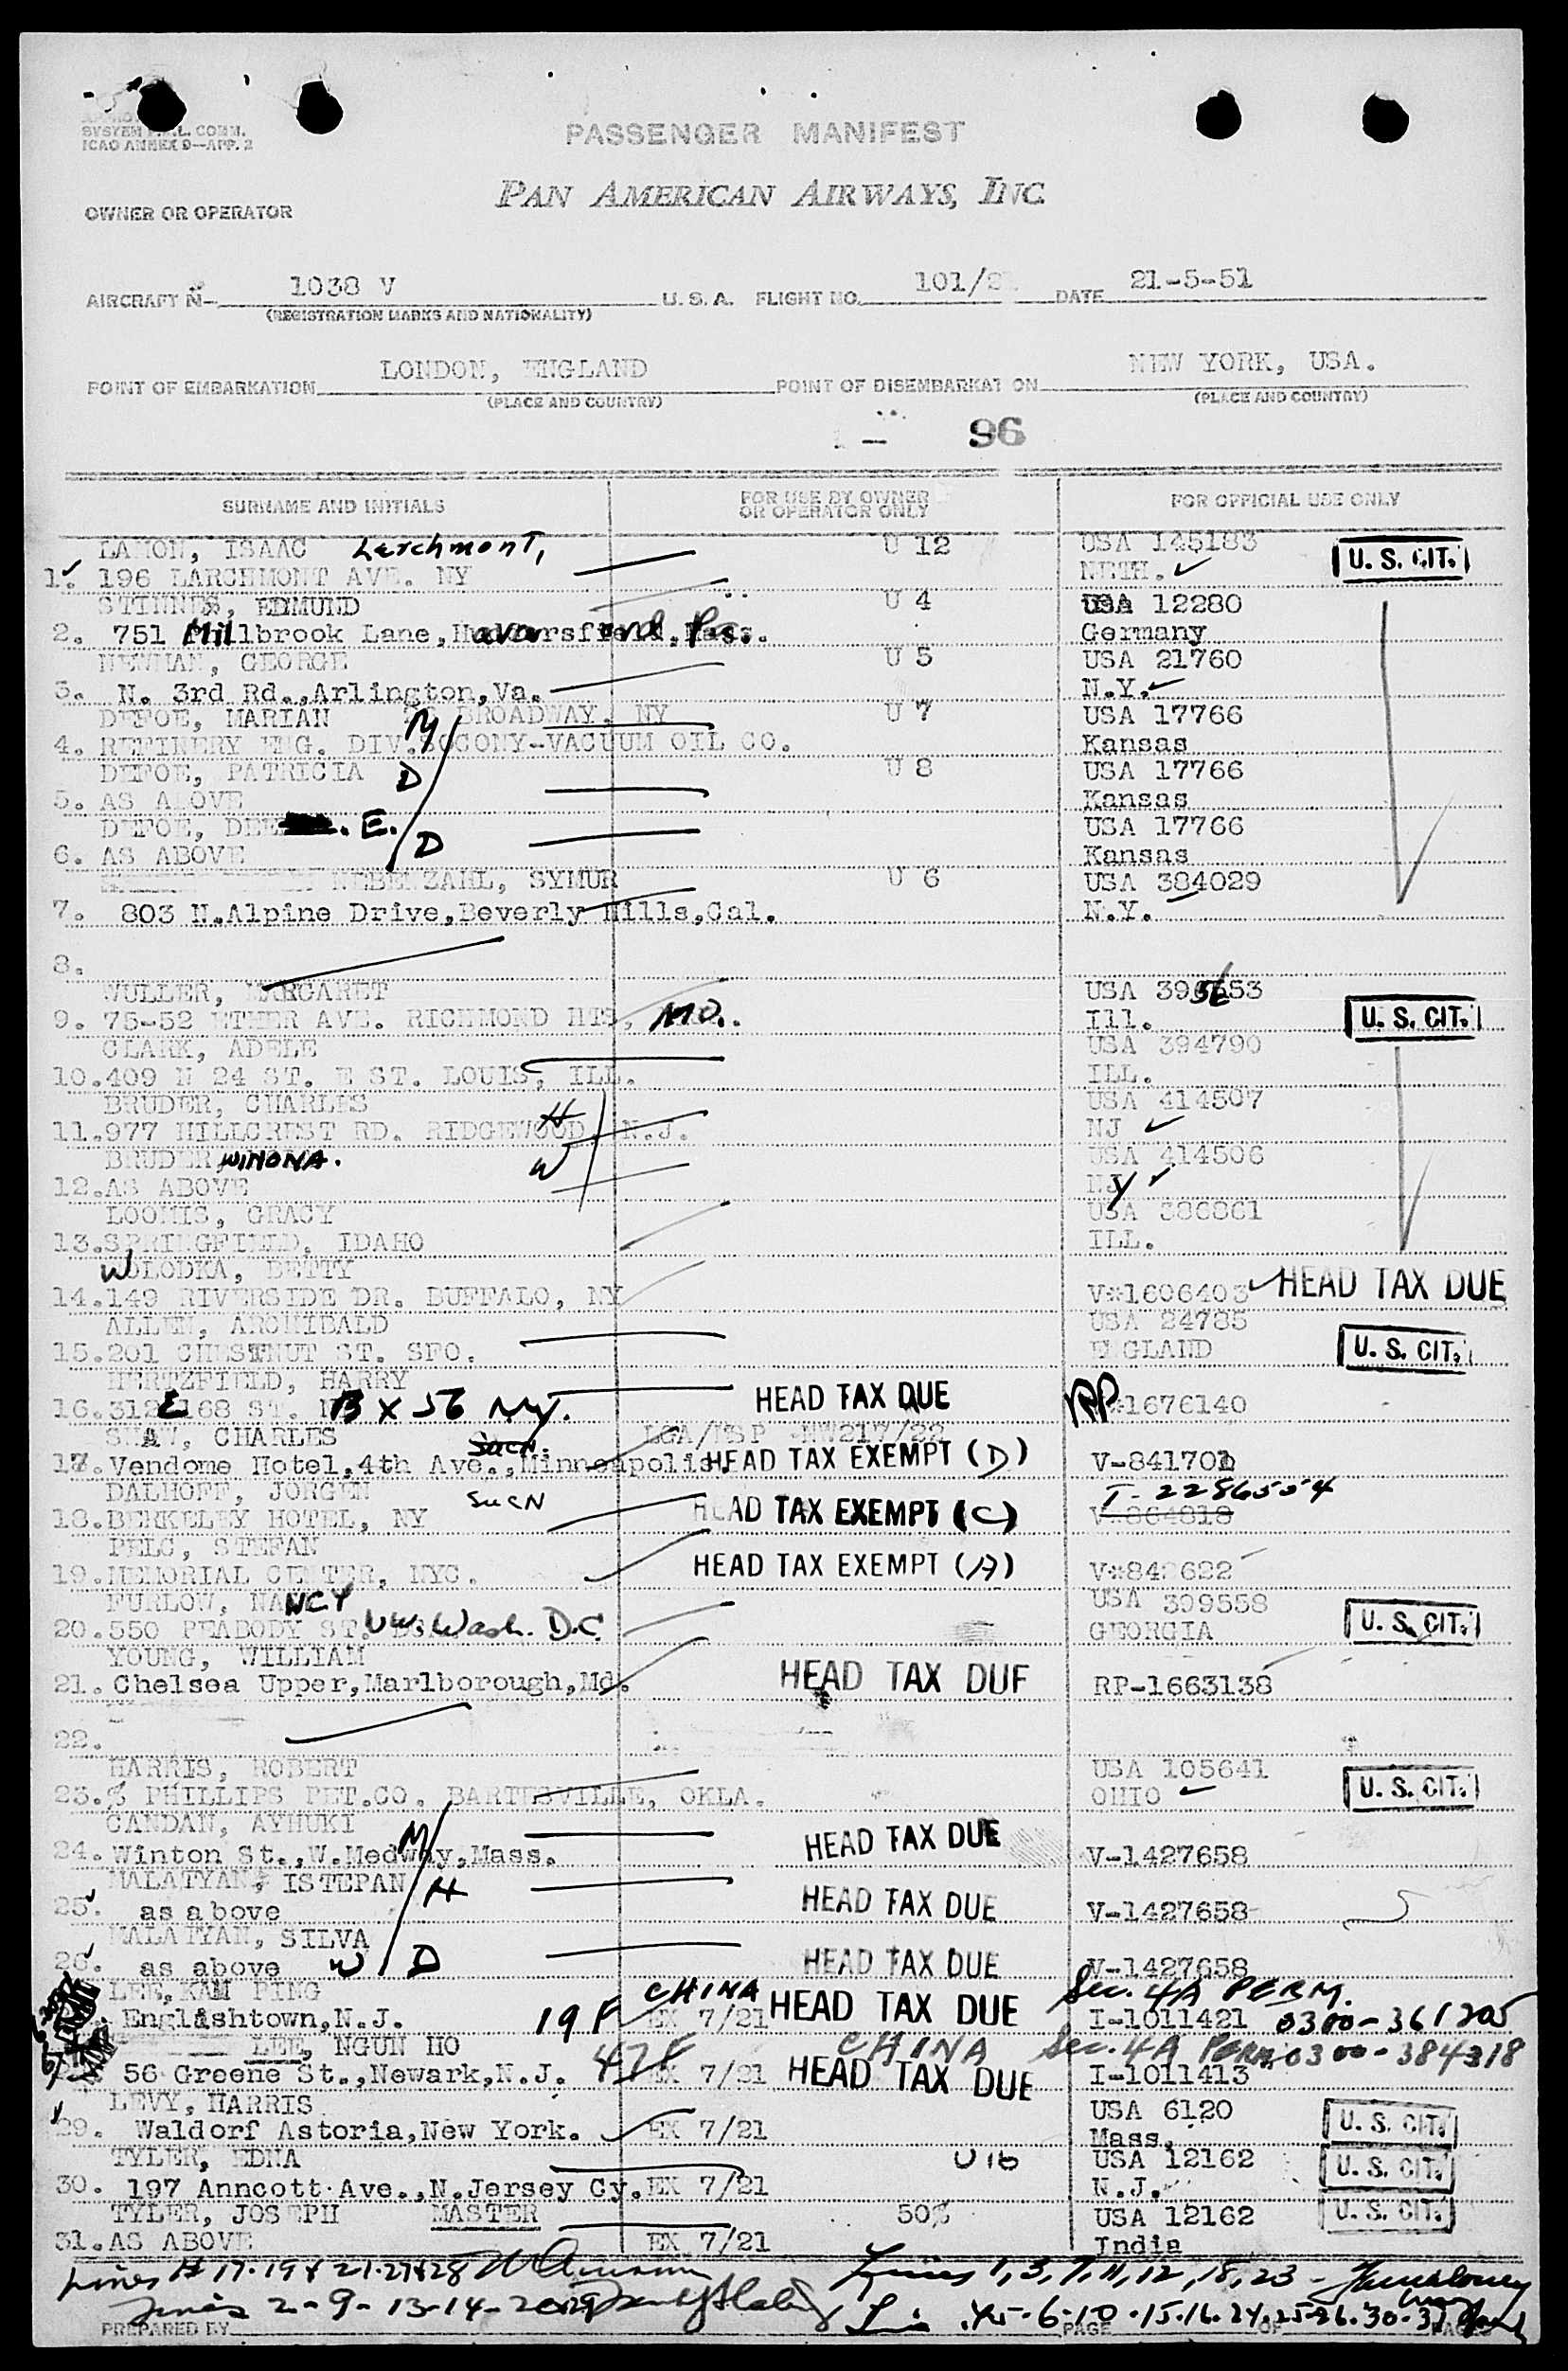 SYSTEM
L. COMM.
ICAO ANNEX 9—APP. 2
PASSENGER MANIFEST
PAN AMERICAN AIRWAYS, INC.
OWNER OR OPERATOR
AIRCRAFT N- 1038 V U. S. A. FLIGHT NO. 101/2 DATE 21-5-51
(REGISTRATION MARKS AND NATIONALITY)
POINT OF EMBARKATION LONDON, ENGLAND POINT OF DISEMBARKATION NEW YORK, USA.
(PLACE AND COUNTRY) (PLACE AND COUNTRY)
96
SURNAME AND INITIALS FOR USE BY OWNER OR OPERATOR ONLY FOR OFFICIAL USE ONLY
LAMON, ISAAC Larchmont, U 12 USA 145183 U. S. CIT.
1. 196 LARCHMONT AVE. NY NETH.
STINNES, EDMUND U 4 USA 12280
2. 751 Millbrook Lane, Pa. Germany
NEWMAN, GEORGE U 5 USA 21760
3. N. 3rd Rd.,Arlington,Va. N.Y.
DEFOE, MARIAN M BROADWAY, NY U 7 USA 17766
4. REFINERY ENG. DIV. SOCONY-VACUUM OIL CO. Kansas
DEFOE, PATRICIA D U 8 USA 17766
5. AS ABOVE Kansas
DEFOE, DEE E. USA 17766
6. AS ABOVE D Kansas
NEBENZAHL, SYMUR U 6 USA 384029
7. 803 N.Alpine Drive,Beverly Hills,Cal. N.Y.
8.
WULLER, MARGARET USA
9. 75-52 ETHER AVE. RICHMOND HTS, MO. Ill. U. S. CIT.
CLARK, ADELE USA 394790
10.409 N 24 ST. E ST. LOUIS, ILL. ILL.
BRUDER, CHARLES H USA 414507
11.977 HILLCREST RD. RIDGEWOOD, N.J. NJ
BRUDER, WINONA. W USA 414506
12.AS ABOVE NY
LOOMIS, GRACY USA 386861
13.SPRINGFIELD, IDAHO ILL.
WOLODKA, BETTY
14.149 RIVERSIDE DR. BUFFALO, NY V*1606403 HEAD TAX DUE
ALLEN, ARCHIBALD USA 24785
15.201 CHESTNUT ST. SFO. ENGLAND U. S. CIT.
HERTZFIELD, HARRY HEAD TAX DUE
16.312 E 168 ST. BX 56 NY. RP 1676140
SHAW, CHARLES LGA/MSP NW217/22
17. Vendome Hotel,4th Ave.,Minneapolis. HEAD TAX EXEMPT (D) V-841701
DALHOFF, JORGEN T-2286504
18.BERKELEY HOTEL, NY HEAD TAX EXEMPT (C) V-864818
PELC, STEFAN
19.MEMORIAL CENTER, NYC. HEAD TAX EXEMPT (A) V*842622
FURLOW, NANCY USA 399558
20.550 PEABODY ST. NW. Wash. D.C. GEORGIA U. S. CIT.
YOUNG, WILLIAM
21. Chelsea Upper,Marlborough,Md. HEAD TAX DUE RP-1663138
22.
HARRIS, ROBERT USA 105641
23.% PHILLIPS PET.CO. BARTESVILLE, OKLA. OHIO U. S. CIT.
CANDAN, AYHUKI M
24. Winton St.,W.Medway,Mass. HEAD TAX DUE V-1427658
MALATYAN, ISTEPAN H
25. as above HEAD TAX DUE V-1427658
MALATYAN, SILVA
26. as above W D HEAD TAX DUE V-1427658
LEE, KAM PING CHINA Sec. 4A PERM.
Englishtown,N.J. 19 F EX 7/21 HEAD TAX DUE I-1011421 0300-361205
LEE, NGUN HO CHINA Sec. 4A PERM. 0300-384318
56 Greene St.,Newark,N.J. 47 F EX 7/21 HEAD TAX DUE I-1011413
LEVY, HARRIS USA 6120
29. Waldorf Astoria,New York. EX 7/21 Mass. U. S. CIT.
TYLER, EDNA U 16 USA 12162
30. 197 Anncott Ave.,N.Jersey Cy. EX 7/21 N.J. U. S. CIT.
TYLER, JOSEPH MASTER 50% USA 12162 U. S. CIT.
31.AS ABOVE EX 7/21 India
Lines # 17-19 & 21-27&28
Lines 1, 3, 7, 11, 12, 18, 23 -
Lines 2-9-13-14-20
6-10-15-16-24-25-26-30-31
PREPARED BY PAGE OF PAGES